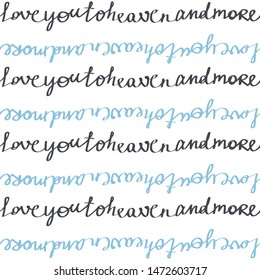 love you to heaven and more
love you to heaven and more
love you to heaven and more
love you to heaven and more
love you to heaven and more
love you to heaven and more
love you to heaven and more
love you to heaven and more
www.shutterstock.com · 1472603717